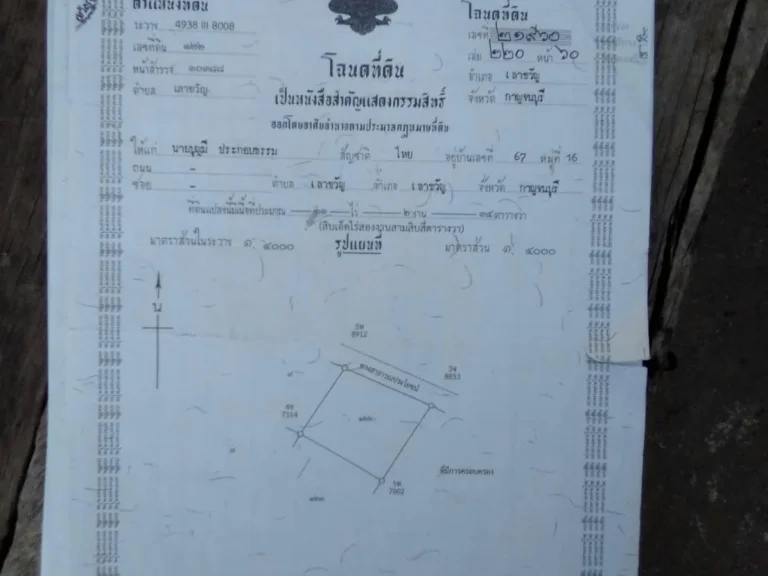 ตำแหน่งที่ดิน
ระวาง 4938 III 8008
เลขที่ดิน ๑๒๒
หน้าสำรวจ
ตำบล เลาขวัญ
โฉนดที่ดิน
เลขที่ ๒๑๙๖๐
เล่ม ๒๒๐ หน้า ๖๐
อำเภอ เลาขวัญ
จังหวัด กาญจนบุรี
โฉนดที่ดิน
เป็นหนังสือสำคัญแสดงกรรมสิทธิ์
ออกโดยอาศัยอำนาจตามประมวลกฎหมายที่ดิน
ให้แก่ นายบุญมี ประกอบธรรม สัญชาติ ไทย อยู่บ้านเลขที่ 67 หมู่ที่ 16
ถนน -
ซอย - ตำบล เลาขวัญ อำเภอ เลาขวัญ จังหวัด กาญจนบุรี
ที่ดินแปลงนี้มีเนื้อที่ประมาณ ๑๑ ไร่ ๒ งาน ๓๔ ตารางวา
(สิบเอ็ดไร่สองงานสามสิบสี่ตารางวา)
มาตราส่วนในระวาง ๑: ๔๐๐๐ รูปแผนที่ มาตราส่วน ๑: ๔๐๐๐
น
8912
ทางสาธารณประโยชน์
8853
7314
๑๒๒
ที่มีการครอบครอง
7902